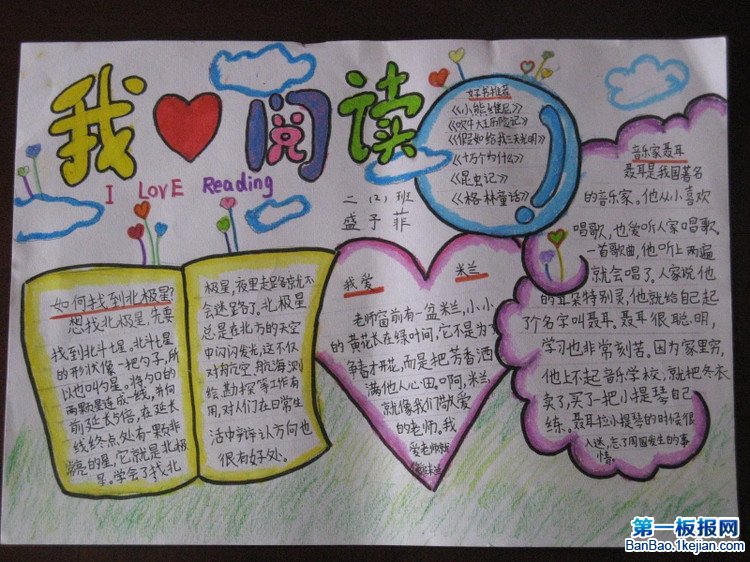 我 阅读
I LovE Reading
二（2）班
盛予菲
好书推荐
《小熊维尼》
《吹牛大王历险记》
《假如给我三天光明》
《十万个为什么》
《昆虫记》
《格林童话》
如何找到北极星?
想找北极星,先要
找到北斗七星,北斗七星
的形状像一把勺子,所
以也叫勺星。将勺口的
两颗星连成一线,并向
前延长5倍,在延长
线终点处有一颗非
亮的星,它就是北极
星。学会了找北
极星,夜里走路就不
会迷路了。北极星
总是在北方的天空
中闪闪发光,这不仅
对航空,航海,测
绘,勘探等工作有
用,对人们在日常生
活中辨认方向也
很有好处。
我爱 米兰
老师窗前有一盆米兰,小小
的黄花长在绿叶间,它不是为了
争着才开花,而是把芳香洒
满他人心田。啊,米兰,
就像我们敬爱
的老师。我
爱老师就
音乐家聂耳
聂耳是我国著名
的音乐家。他从小喜欢
唱歌,也爱听人家唱歌。
一首歌曲,他听上两遍
就会唱了。人家说他
的耳朵特别灵,他就给自己起
了个名字叫聂耳。聂耳很聪明,
学习也非常刻苦。因为家里穷,
他上不起音乐学校,就把冬衣
卖了,买了一把小提琴自己
练。聂耳拉小提琴的时候很
入迷,忘了周围发生的事
情。
第一板报网
BanBao.1kejian.com